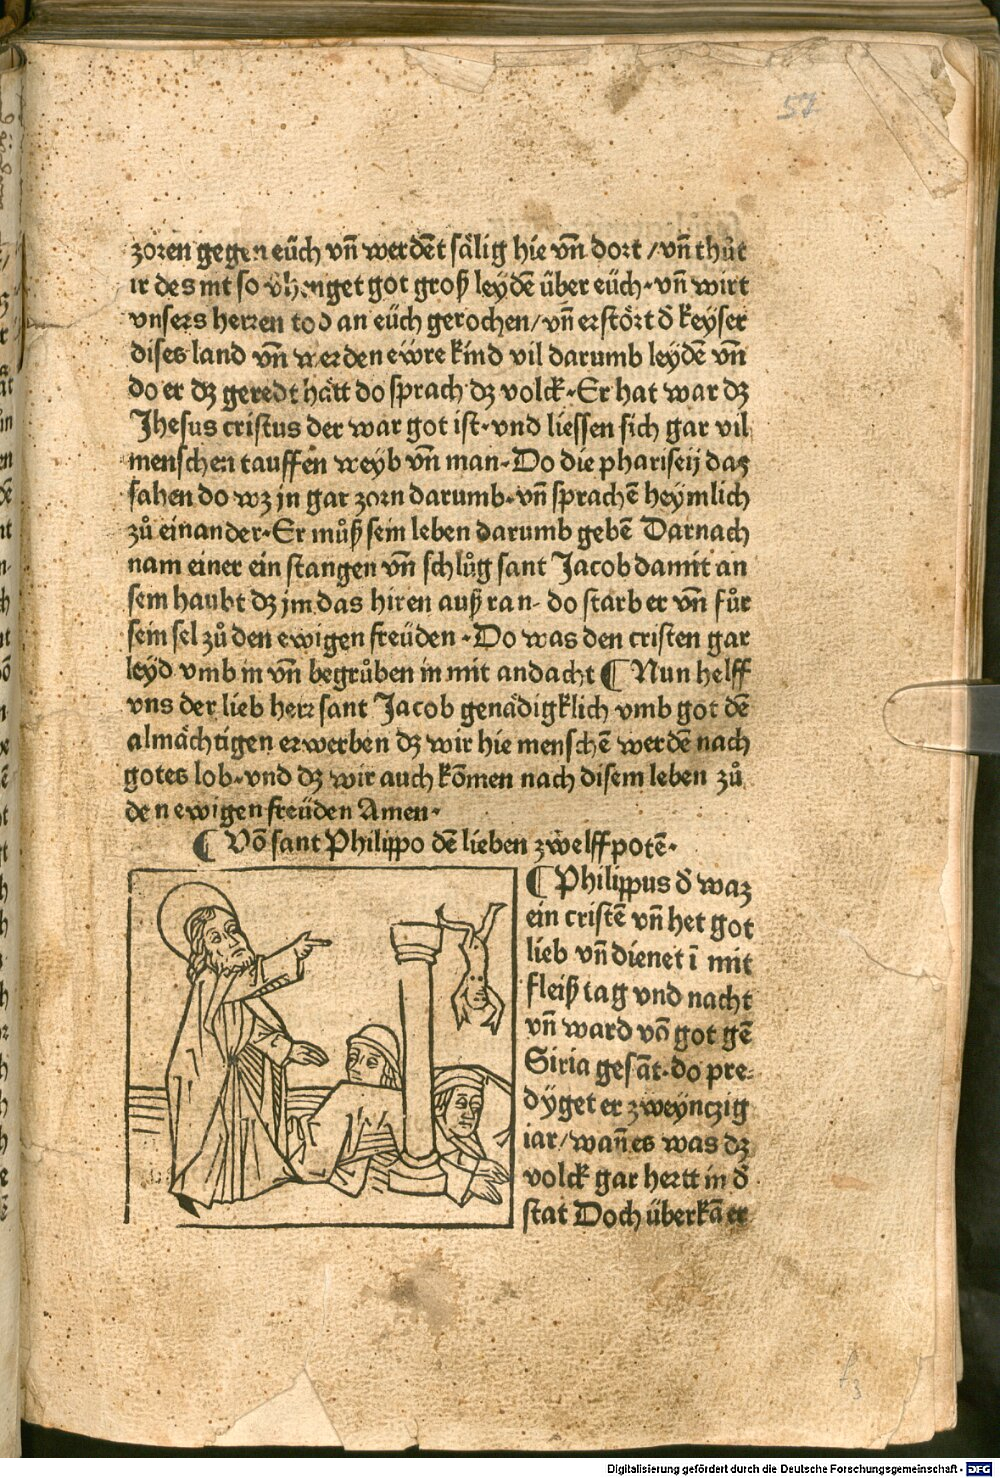 57
zoren gegen eüch vñ werdẽt sälig hie vñ dort / vñ thůt
ir des nit so v̈henget got groß leydẽ über eüch · vñ wirt
vnsers herren tod an eüch gerochen / vñ erstört d̕ keyser
dises land vñ werden ewre kind vil darumb leydẽ vñ
do er dz geredt hätt do sprach dz volck · Er hat war dz
Jhesus cristus der war got ist · vnd liessen sich gar vil
menschen tauffen weyb vñ man · Do die phariseij daz
sahen do wz jn gar zorn darumb · vñ sprachẽ heymlich
zů einander · Er můß sein leben darumb gebẽ Darnach
nam einer ein stangen vñ schlůg sant Jacob damit an
sein haubt dz jm das hiren auß ran · do starb er vñ fůr
sein sel zů den ewigen freüden · Do was den cristen gar
leyd vmb in vñ begrůben in mit andacht ¶ Nun helff
vns der lieb herr sant Jacob genädigklich vmb got dẽ
almächtigen erwerben dz wir hie menschẽ werdẽ nach
gotes lob · vnd dz wir auch kõmen nach disem leben zů
den ewigen freüden Amen ·
¶ Võ sant Philippo dẽ lieben zwelffpotẽ ·
¶ Philippus d̕ waz
ein cristẽ vñ het got
lieb vñ dienet ĩ mit
fleiß tag vnd nacht
vñ ward võ got gẽ
Siria gesãt · do pre⸗
dyget er zweynczig
iar / wañ es was dz
volck gar hertt in d̕
stat Doch überkã er
f3
Digitalisierung gefördert durch die Deutsche Forschungsgemeinschaft - DFG